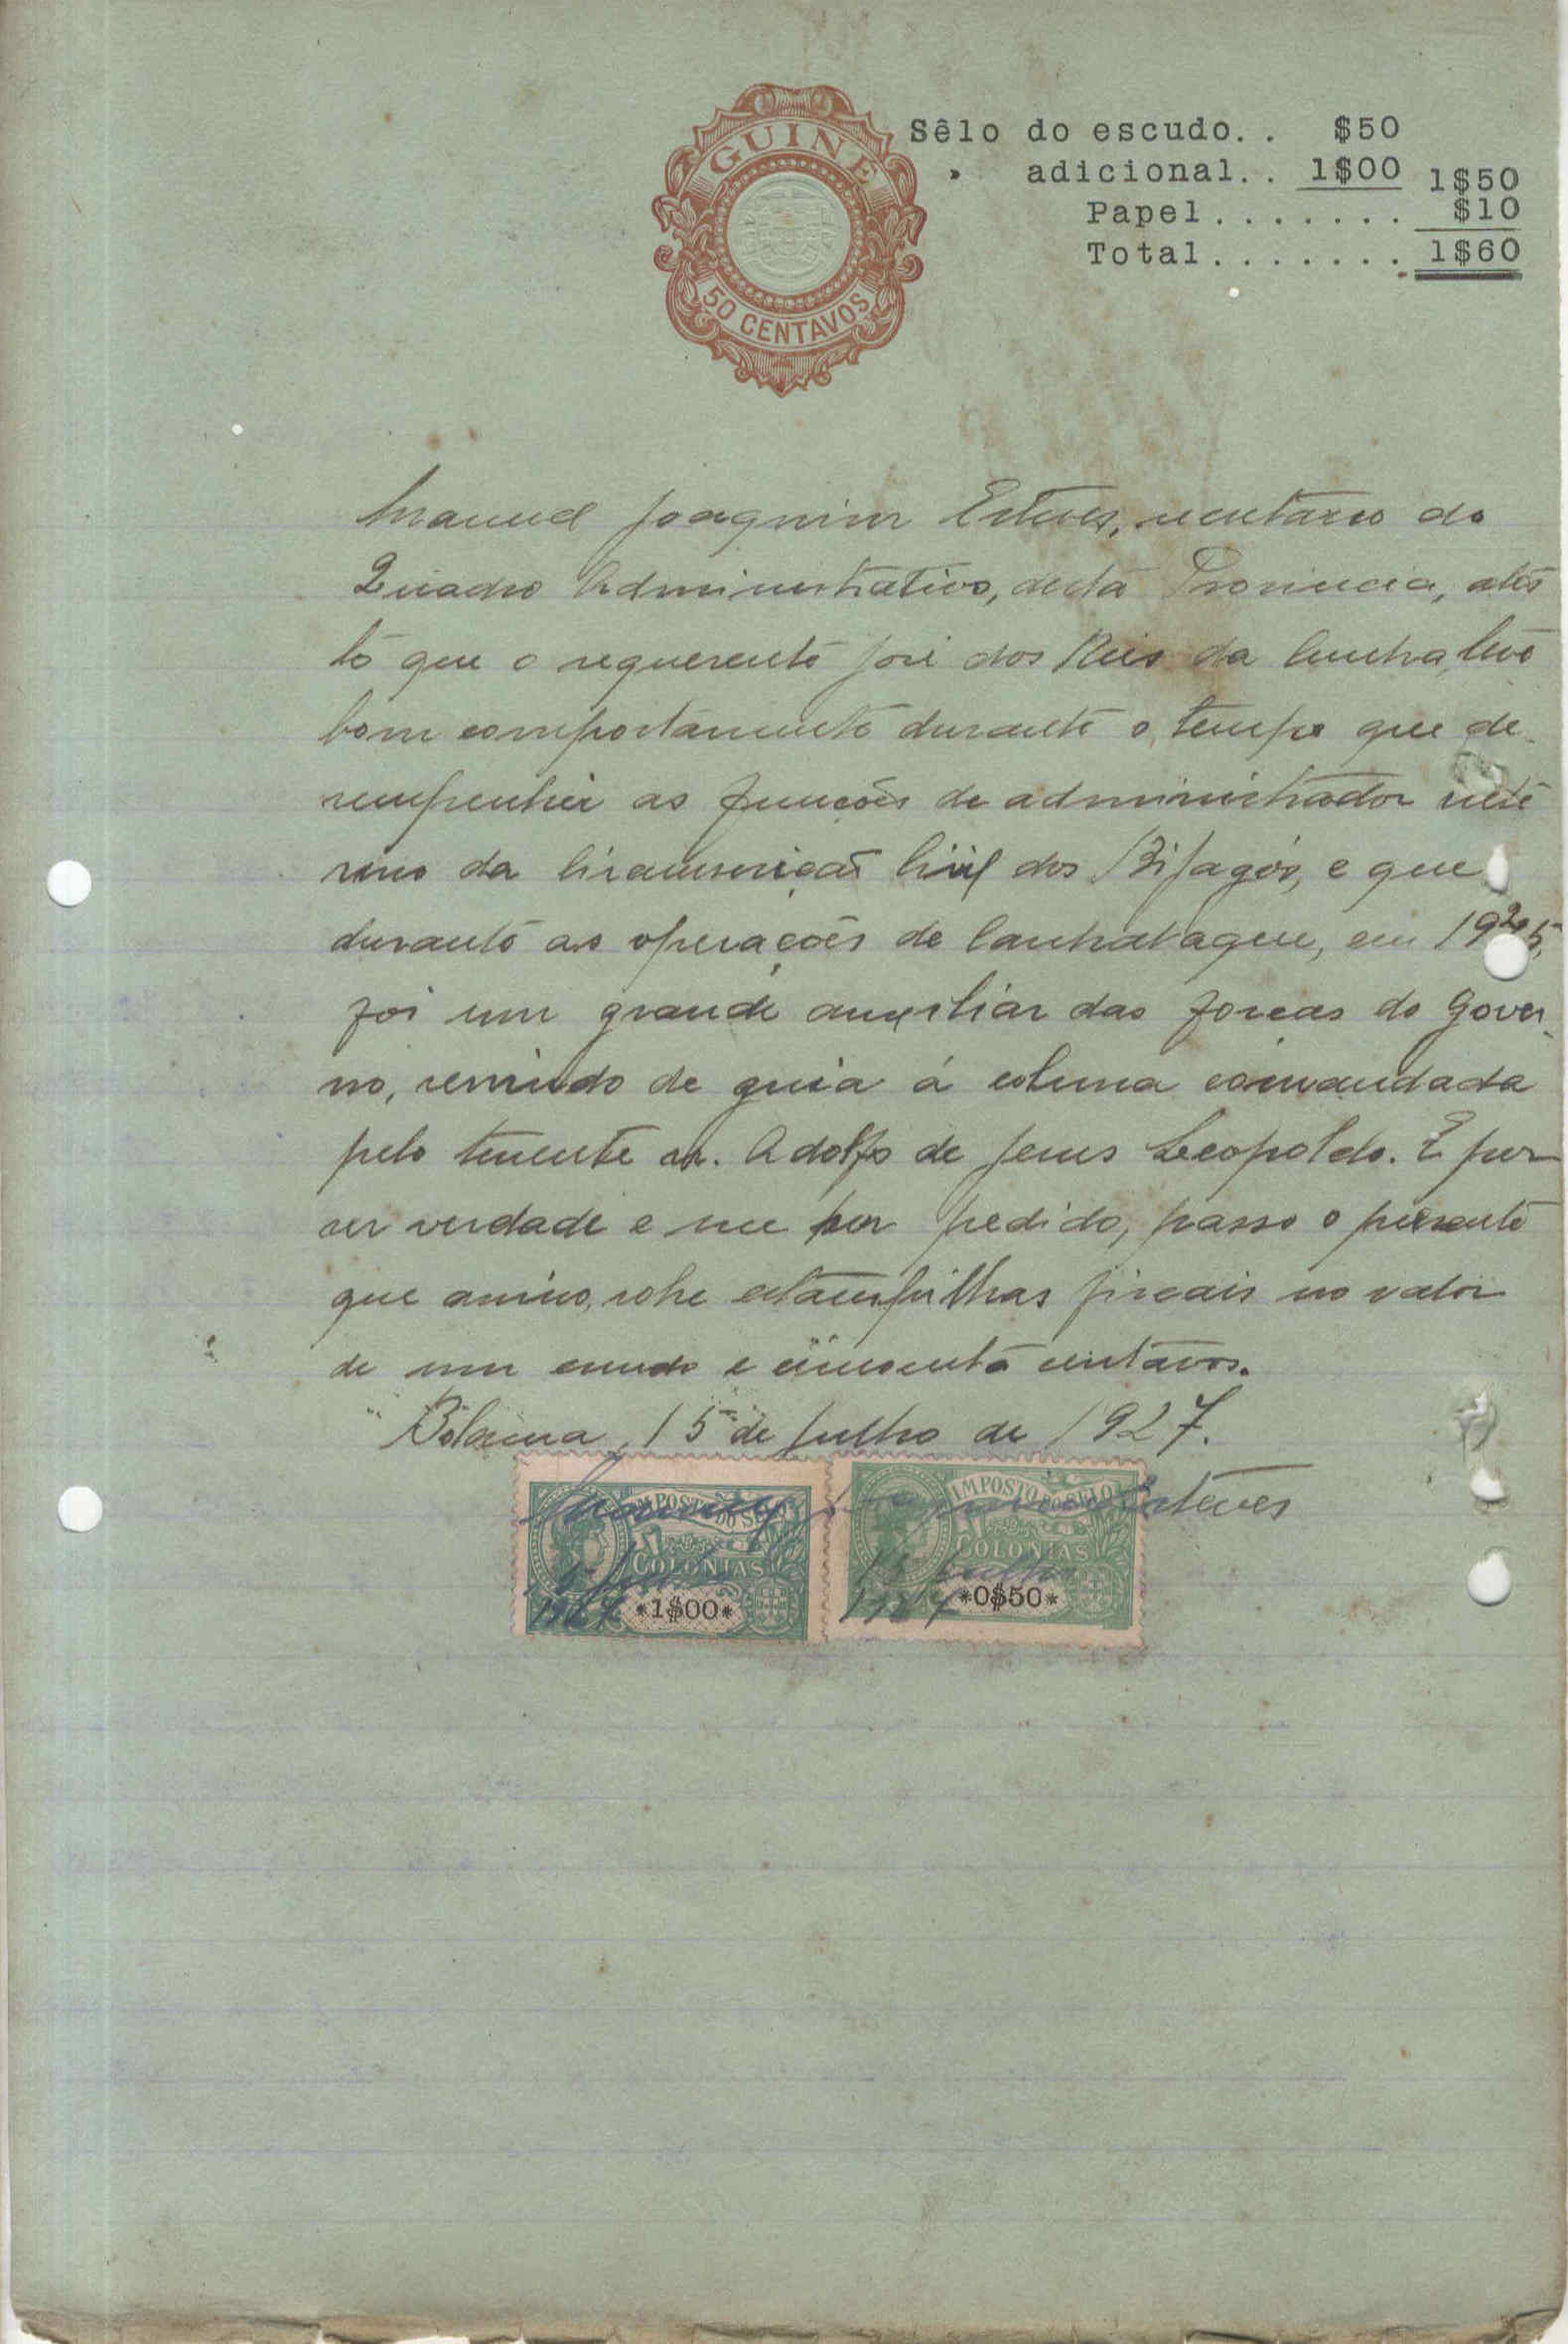 GUINÉ
50 CENTAVOS
Sêlo do escudo. . $50
» adicional. . 1$00 1$50
Papel . . . . . . . $10
Total . . . . . . . 1$60
Manuel Joaquim Esteves, secretario do
Quadro Administrativo, desta Provincia, ates
to que o requerente José dos Reis da Cunha, teve
bom comportamento durante o tempo que de-
sempenhou as funções de administrador inte
rino da Circunscrição Civil dos Bijagós, e que
durante as operações de Canhabaque, em 1925,
foi um grande auxiliar das forcas do Gover
no, servindo de guia á coluna comandada
pelo tenente sr. Adolfo de Jesus Leopoldo. E por
ser verdade e me ser pedido, passo o presente
que assino, sobre estampilhas fiscais no valor
de um escudo e cincoenta centavos.
Bolama, 15 de Julho de 1927.
Manuel Joaquim Esteves
IMPOSTO DO SELO
COLONIAS
*1$00*
15 Julho
1927
IMPOSTO DO SELO
COLONIAS
*0$50*
15 Julho
1927